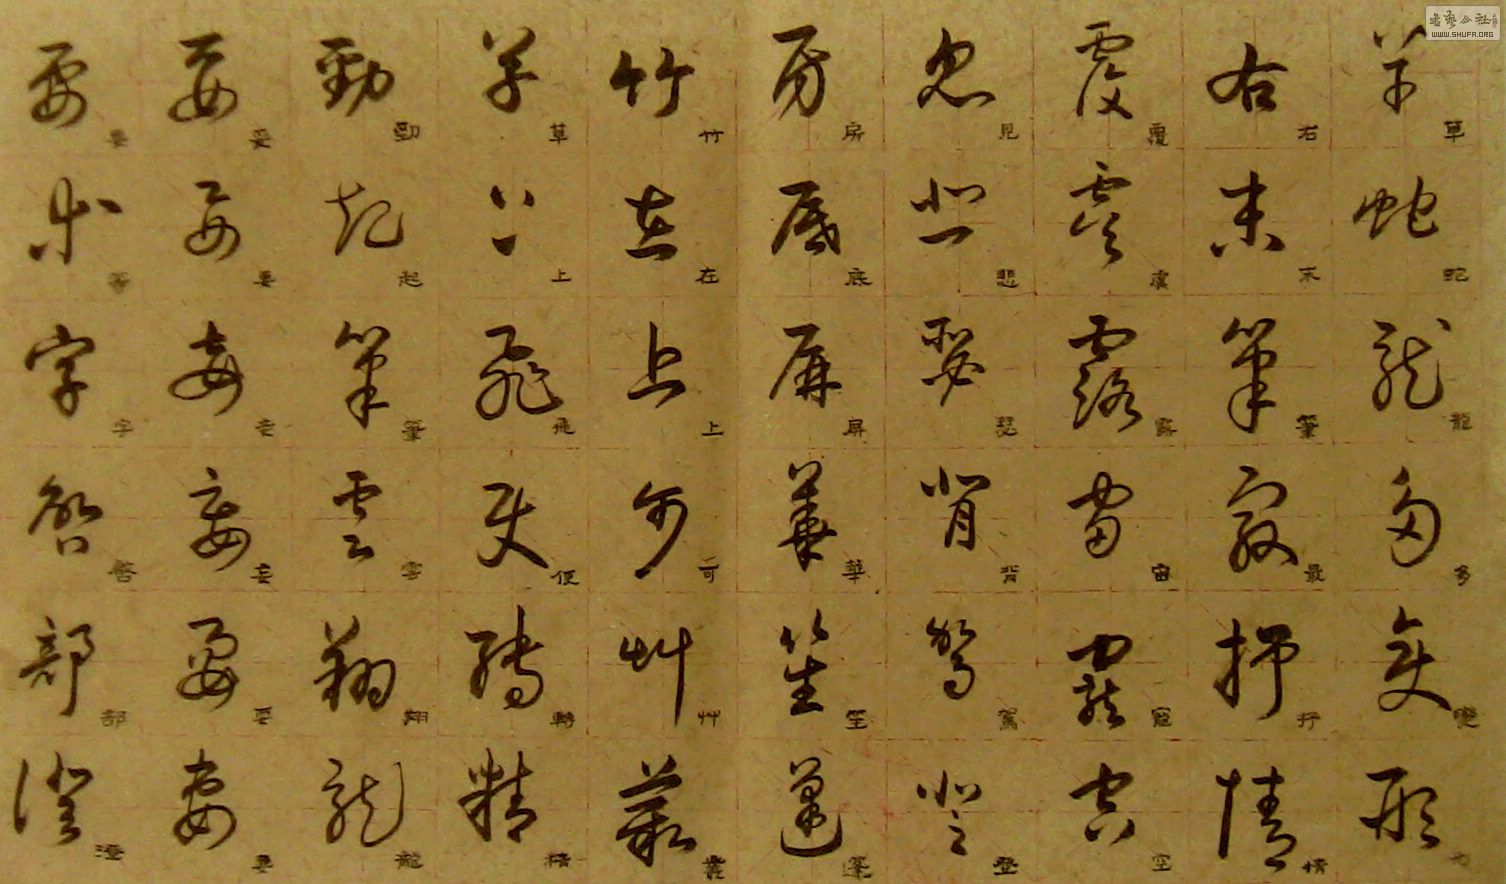 书艺公社
WWW.SHUFA.ORG
草蛇龍多變形
右末筆最抒情
覆露宙空
悲瑟背駕登
房底屏華笙蓬
竹在上可艸叢
草上飛便轉精
勁起筆雲翔龍
妥要妄要
要等字啓部澄